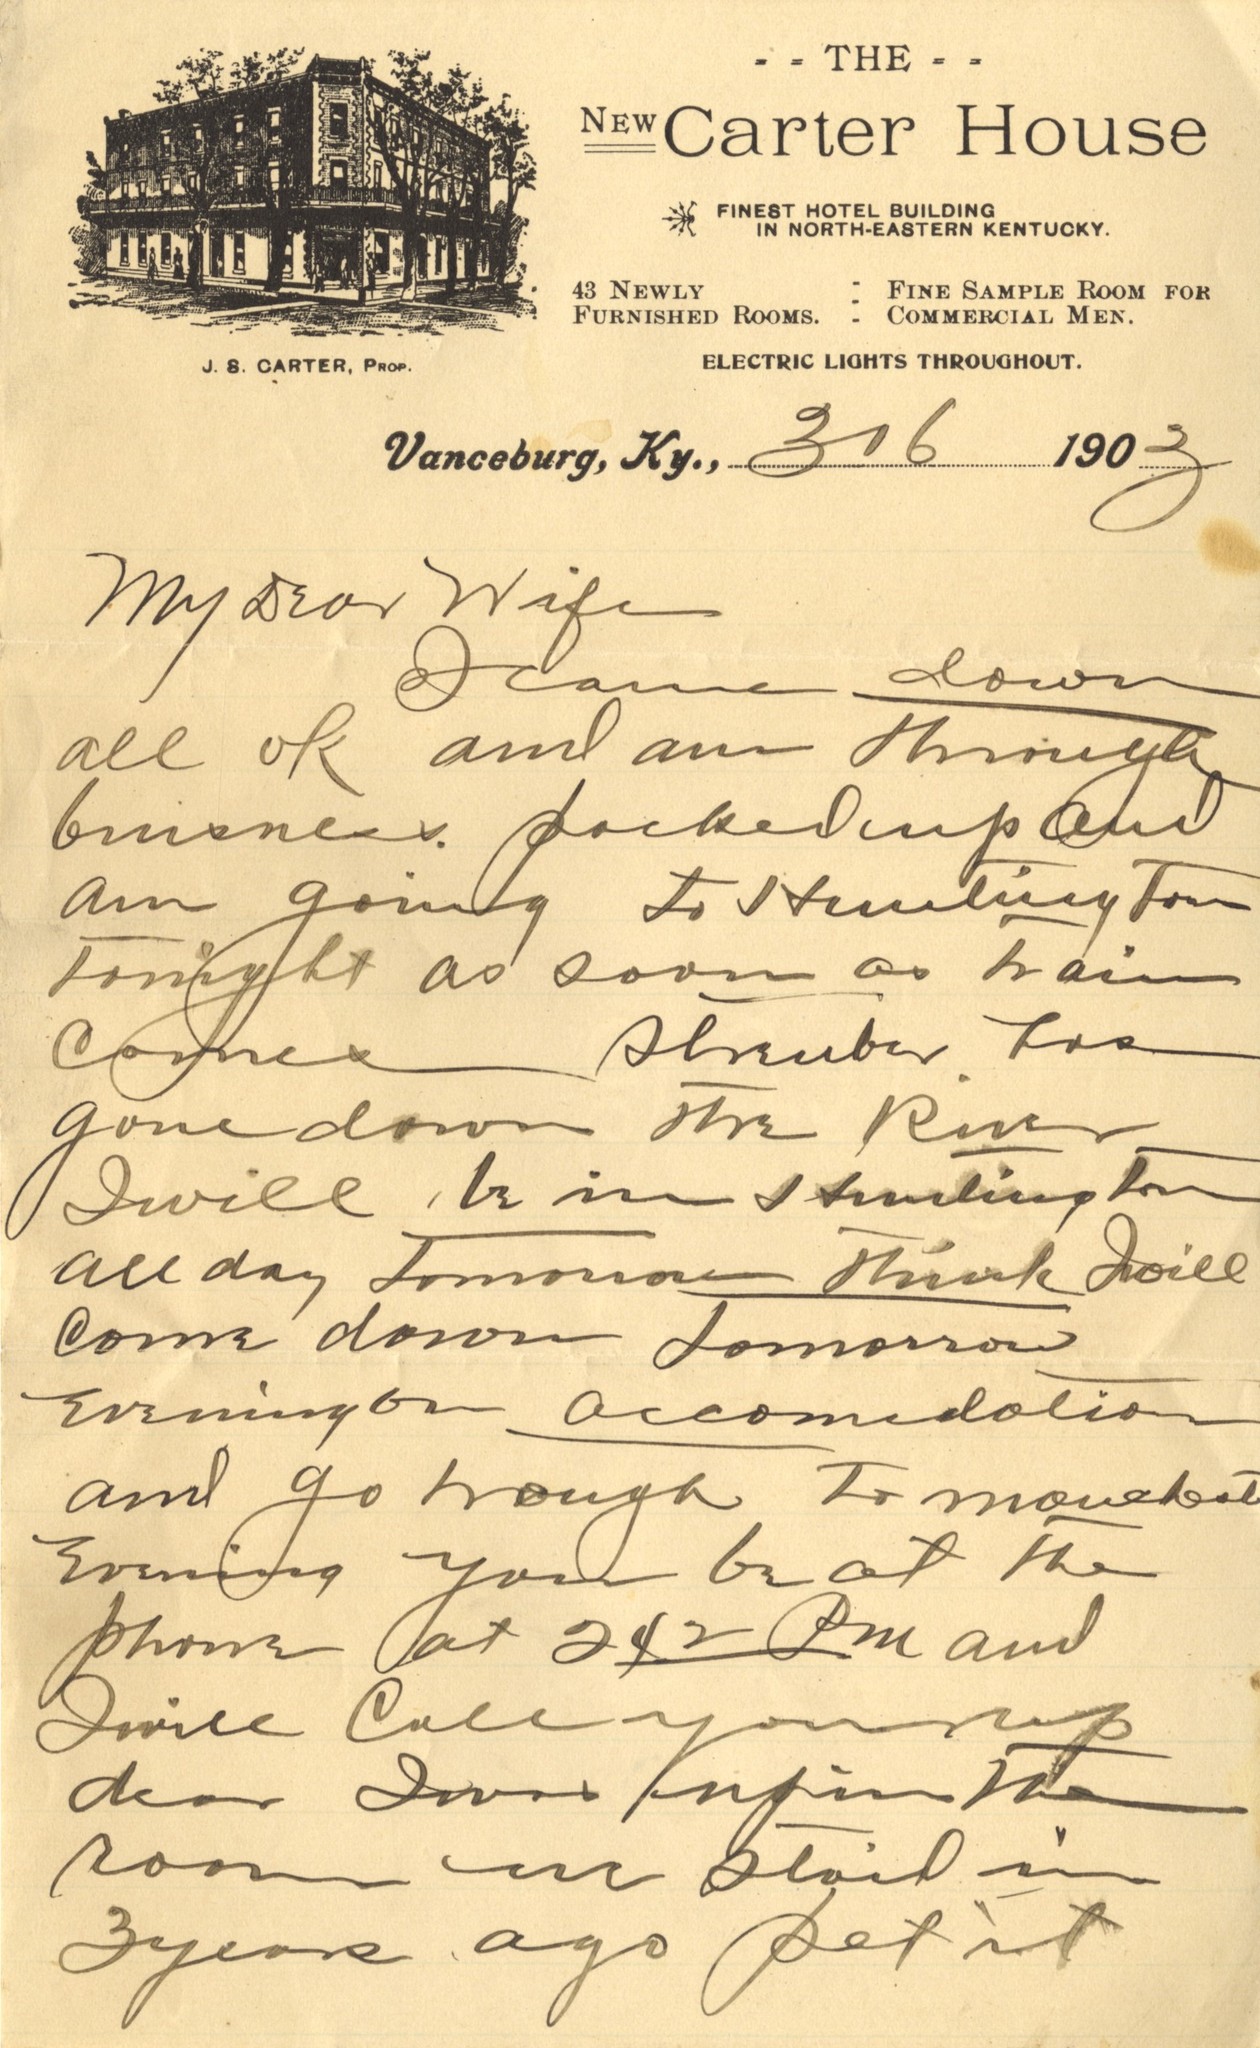 - - THE - -
NEW Carter House
FINEST HOTEL BUILDING
IN NORTH-EASTERN KENTUCKY.
43 NEWLY
FURNISHED ROOMS.
FINE SAMPLE ROOM FOR
COMMERCIAL MEN.
J. S. CARTER, PROP.
ELECTRIC LIGHTS THROUGHOUT.
Vanceburg, Ky., 3 16 1903
My Dear Wife
I came down
all ok and am through
buisness. packed up and
am going to Huntington
tonight as soon as train
comes Streuber has
gone down the River
I will be in Huntington
all day tomorrow think I will
come down tomorrow
evening on accomodation
and go trough to
Evening you be at the
phone at 242 PM and
I will call you up
dear I was up in the
room we staid in
3 years ago pet it